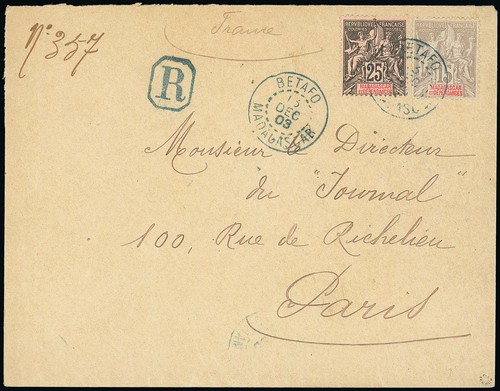 France
n° 357
R
RÉPUBLIQUE FRANÇAISE
25
MADAGASCAR
ET DÉPENDANCES
15
MADAGASCAR
ET DÉPENDANCES
BETAFO
13
DEC
03
MADAGASCAR
BETAFO
Monsieur le Directeur
du "Journal"
100, Rue de Richelieu
Paris